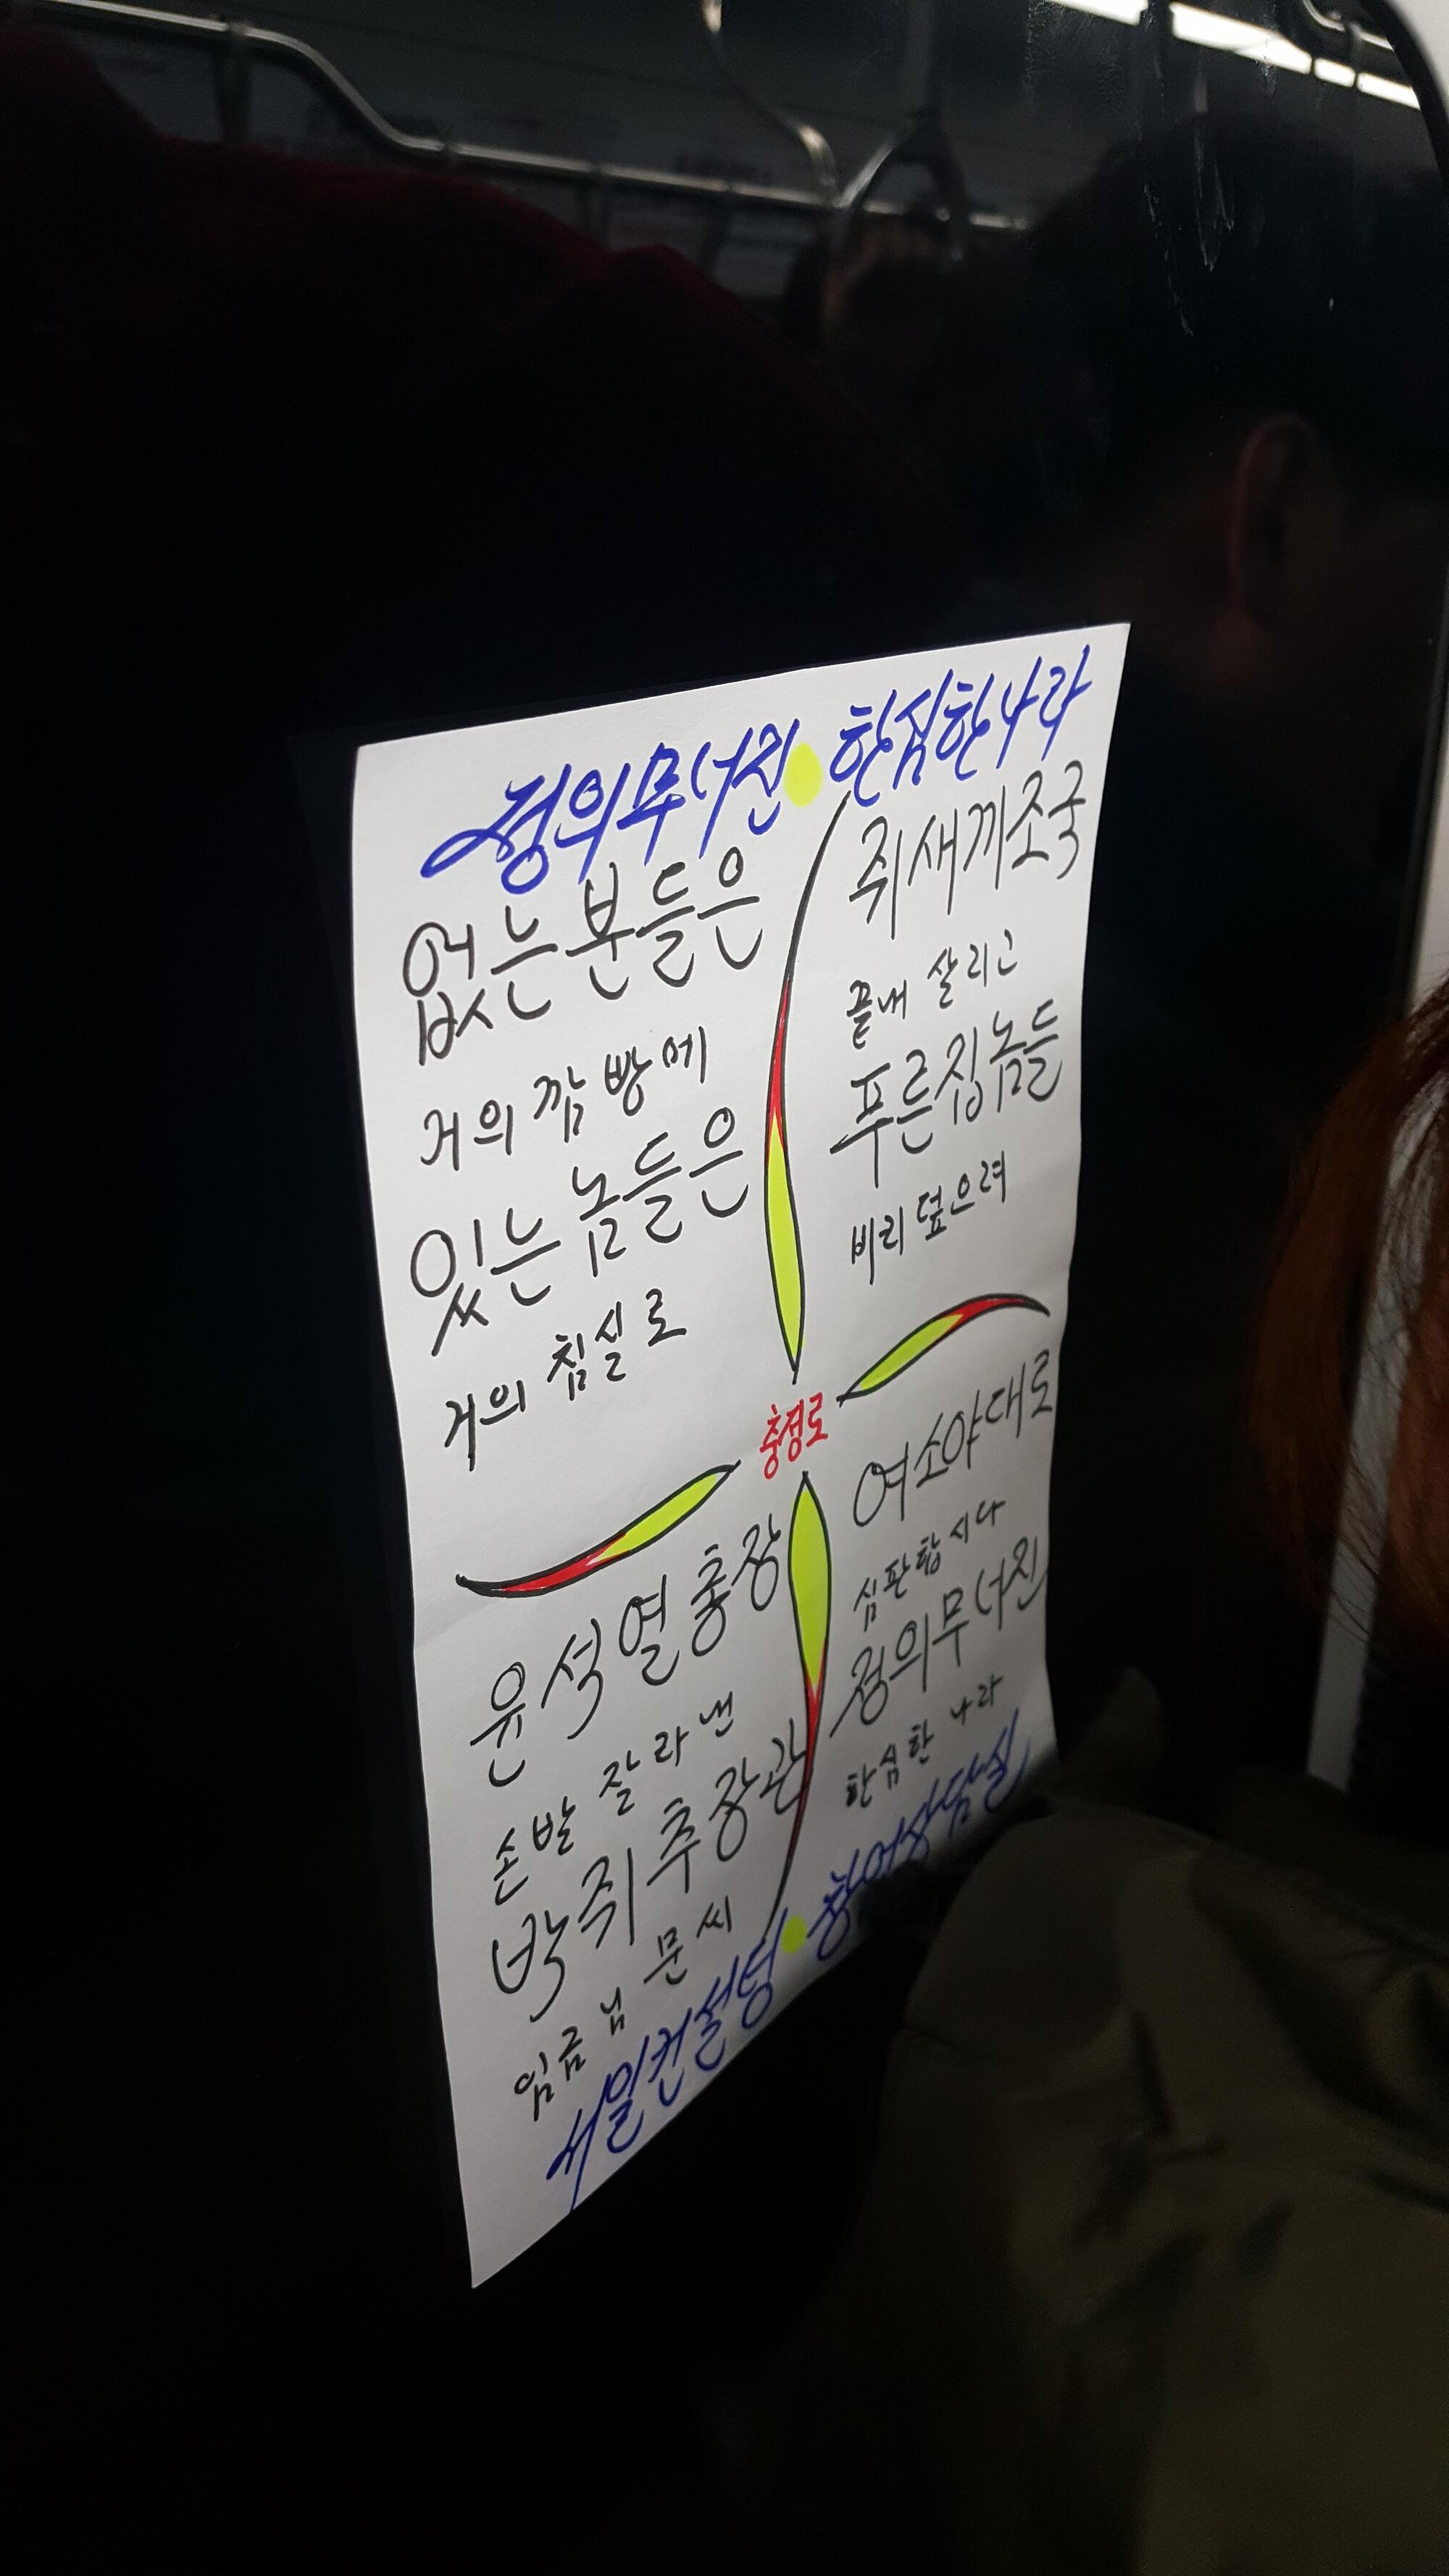 정의무너진 한심한나라
없는분들은
거의 깜방에
있는놈들은
거의 침실로
쥐새끼조국
끝내 살리고
푸른집놈들
비리 덮으려
충정로
윤석열총장
손발 잘라낸
박쥐추장관
임금님 문씨
여소야대로
심판합시다
정의무너진
한심한 나라
세일컨설팅 창업상담실